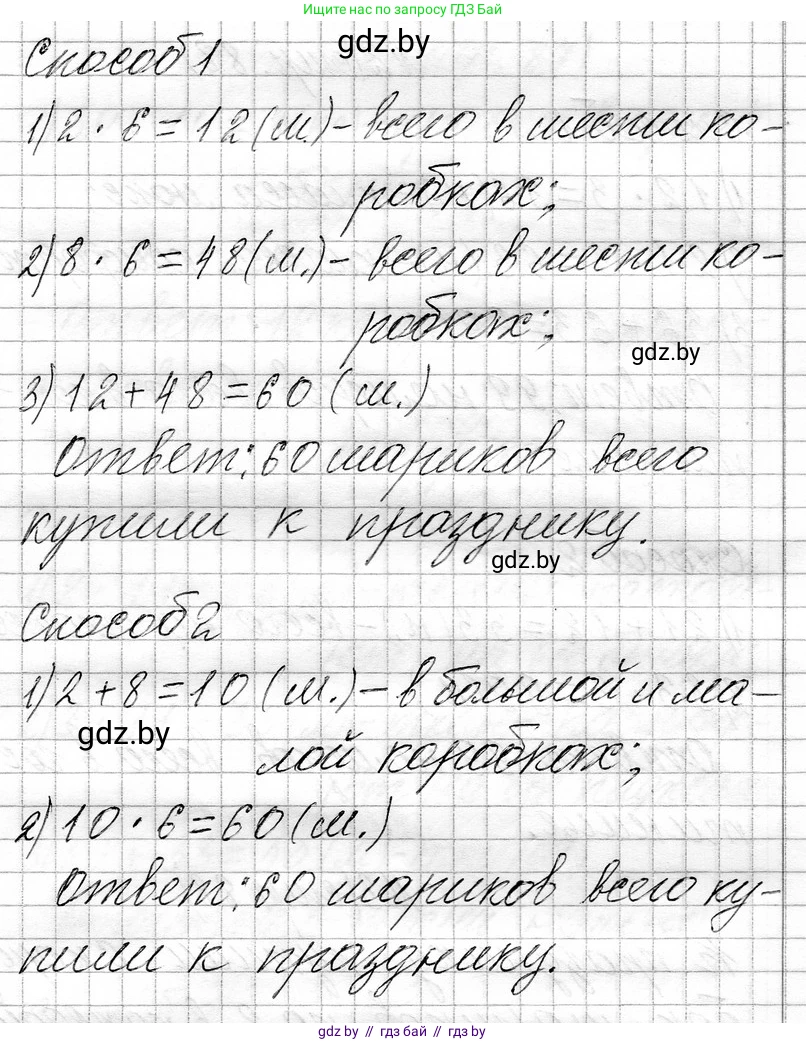 Ищите нас по запросу ГДЗ Бай
gdz.by
Способ 1
1) 2 · 6 = 12 (ш.) - всего в шести ко-
робках;
2) 8 · 6 = 48 (ш.) - всего в шести ко-
робках;
gdz.by
3) 12 + 48 = 60 (ш.)
Ответ: 60 шариков всего
купили к празднику.
gdz.by
Способ 2
1) 2 + 8 = 10 (ш.) - в большой и ма-
gdz.by
лой коробках;
2) 10 · 6 = 60 (ш.)
Ответ: 60 шариков всего ку-
пили к празднику.
gdz.by // гдз бай // гдз by